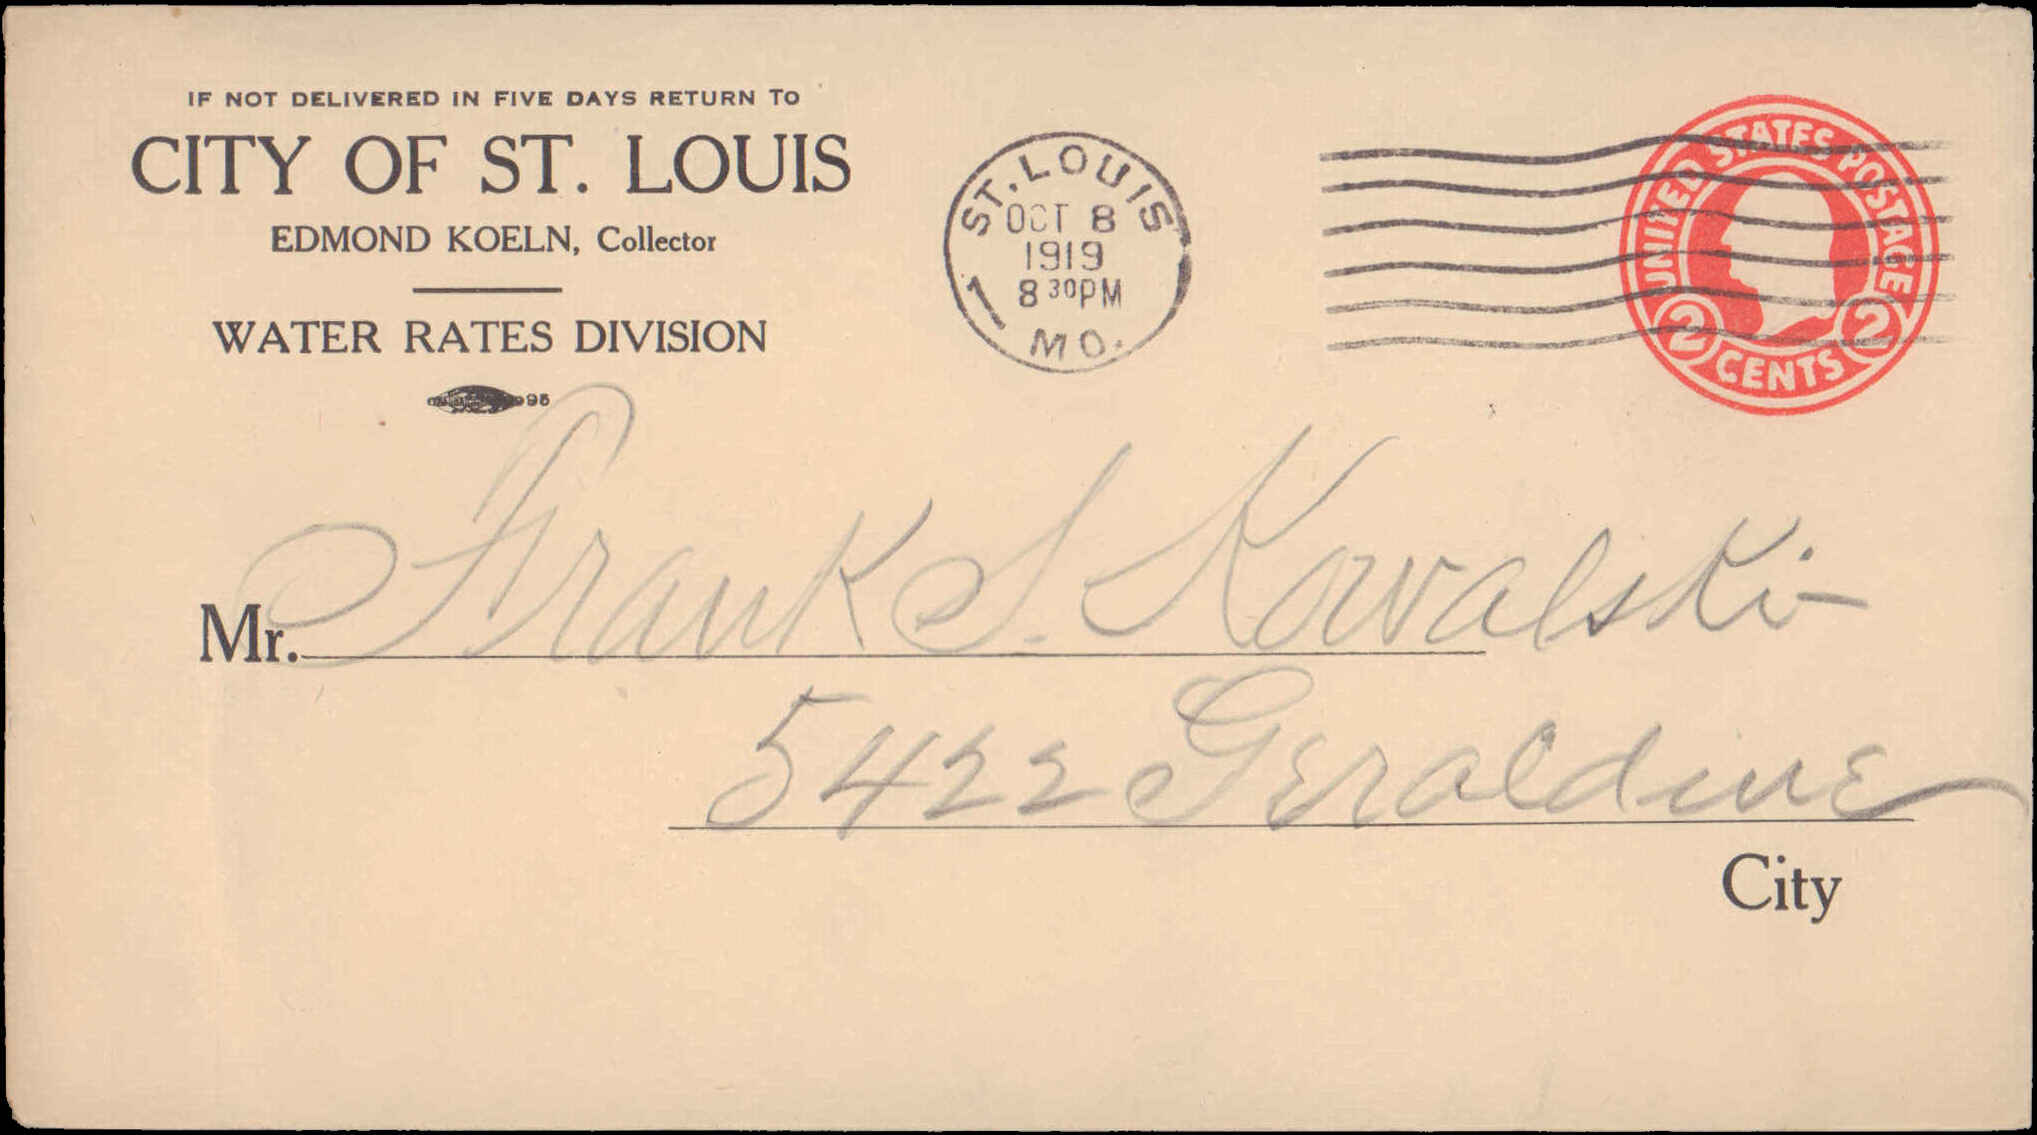 IF NOT DELIVERED IN FIVE DAYS RETURN TO
CITY OF ST. LOUIS
EDMOND KOELN, Collector
WATER RATES DIVISION
95
ST. LOUIS
OCT 8
1919
8 30PM
1
MO.
UNITED STATES POSTAGE
2 CENTS 2
Mr. Frank S. Kowalski
5422 Geraldine
City